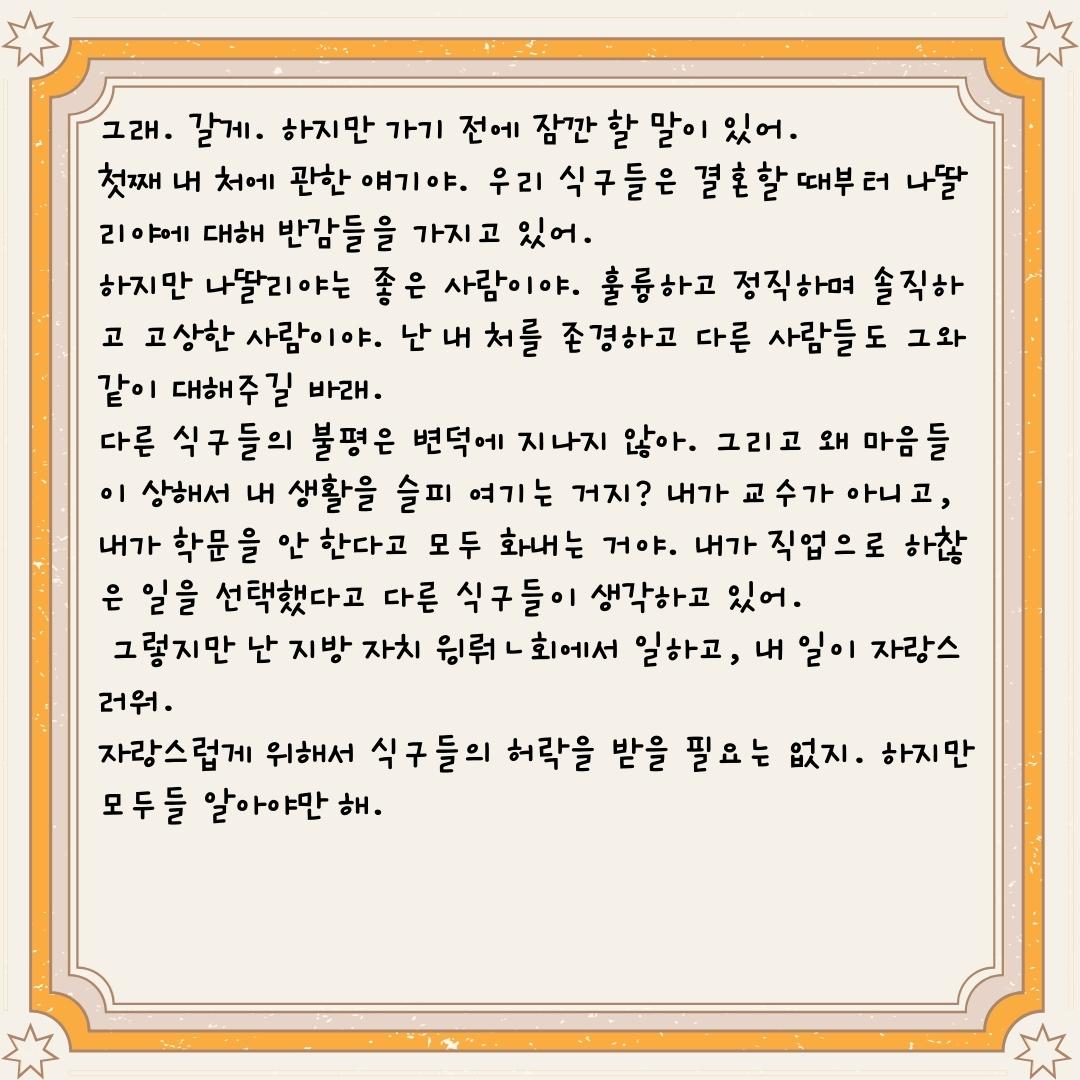 그래. 갈게. 하지만 가기 전에 잠깐 할 말이 있어.
첫째 내 처에 관한 얘기야. 우리 식구들은 결혼할 때부터 나딸
리야에 대해 반감들을 가지고 있어.
하지만 나딸리야는 좋은 사람이야. 훌륭하고 정직하며 솔직하
고 고상한 사람이야. 난 내 처를 존경하고 다른 사람들도 그와
같이 대해주길 바래.
다른 식구들의 불평은 변덕에 지나지 않아. 그리고 왜 마음들
이 상해서 내 생활을 슬피 여기는 거지? 내가 교수가 아니고,
내가 학문을 안 한다고 모두 화내는 거야. 내가 직업으로 하찮
은 일을 선택했다고 다른 식구들이 생각하고 있어.
그렇지만 난 지방 자치 윙뤄ㄴ회에서 일하고, 내 일이 자랑스
러워.
자랑스럽게 위해서 식구들의 허락을 받을 필요는 없지. 하지만
모두들 알아야만 해.